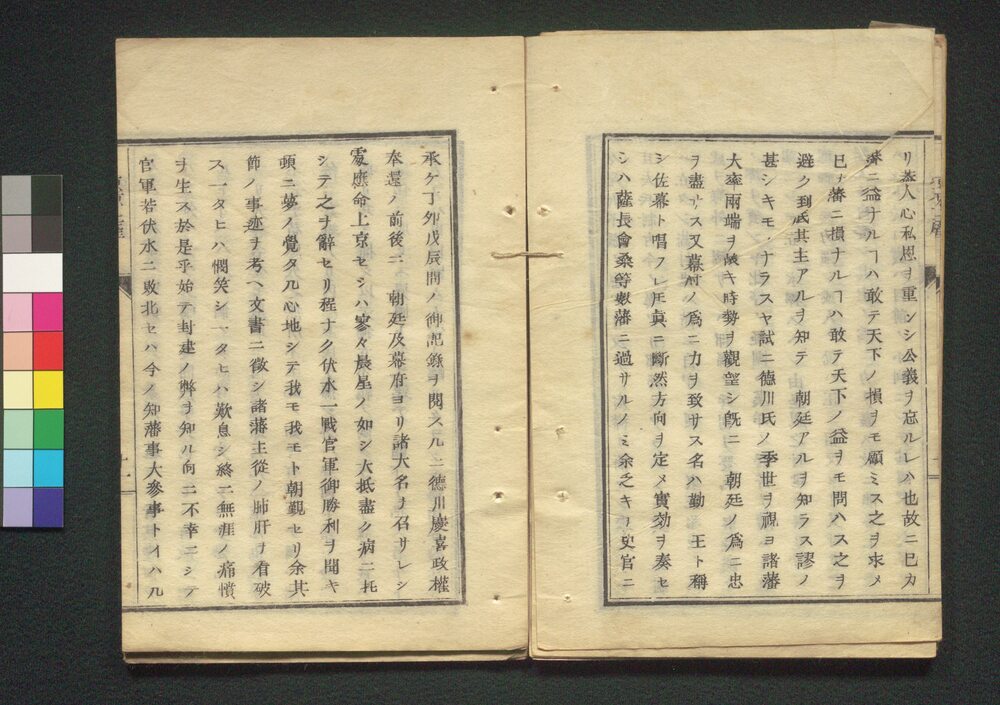 リ蓋人心私恩ヲ重ンシ公義ヲ忘ルレハ也故ニ己カ
藩ニ益ナルヿハ敢テ天下ノ損ヲモ顧ミス之ヲ求メ
已カ藩ニ損ナルヿハ敢テ天下ノ益ヲモ問ハス之ヲ
避ク到底其主アルヲ知テ 朝廷アルヲ知ラス謬ノ
甚シキモノナラスヤ試ニ德川氏ノ季世ヲ視ヨ諸藩
大率兩端ヲ キ時勢ヲ觀望シ旣ニ 朝廷ノ爲ニ忠
ヲ盡サス又幕府ノ爲ニ力ヲ致サス名ハ勤 王ト稱
シ佐幕ト唱フレ𪜈眞ニ斷然方向ヲ定メ實効ヲ奏セ
シハ薩長會桑等數藩ニ過サルノミ余乏キヲ史官ニ
承ケ丁卯戊辰間ノ御記錄ヲ閱スルニ德川慶喜政權
奉還ノ前後ニ 朝廷及幕府ヨリ諸大名ヲ召サレシ
處應命上京セシハ寥々晨星ノ如シ大抵盡ク病ニ托
シテ之ヲ辭セリ程ナク伏水一戰官軍御勝利ヲ聞キ
頓ニ夢ノ覺タル心地シテ我モ我モト朝覲セリ余其
節ノ事迹ヲ考ヘ文書ニ徵シ諸藩主從ノ肺肝ヲ看破
ス一タヒハ憫笑シ一タヒハ歎息シ終ニ無涯ノ痛憤
ヲ生ス於是乎始テ封建ノ弊ヲ知ル向ニ不幸ニシテ
官軍若伏水ニ敗北セハ今ノ知藩事大參事トイハル